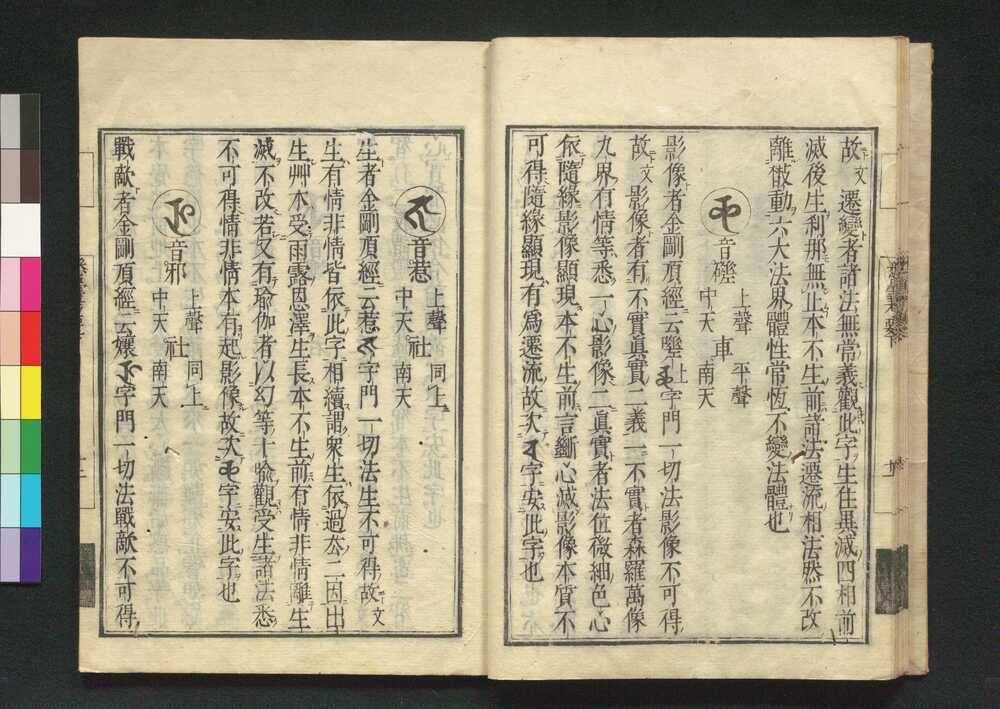 故文 遷變者諸法無常義觀此字生住異滅四相前
滅後生刹那無止本不生前諸法遷流相法然不改
離散動六大法界體性常恆不變法體也
音磋 上聲 中天 車 平聲 南天
影像者金剛頂經云 上字門一切法影像不可得
故文 影像者有不實眞實二義一不實者森羅萬像
九界有情等悉一心影像二眞實者法位微細色心
依隨緣影像顯現本不生前言斷心滅影像本質不
可得隨緣顯現有爲遷流故次 字安此字也
音惹 上聲 中天 社 同上 南天
生者金剛頂經云惹 字門一切法生不可得故文
生有情非情皆依此字相續謂衆生依過去二因出
生艸木受雨露恩澤生長本不生前有情非情離生
滅不改若又有瑜伽者以幻等十喩觀受生諸法悉
不可得情非情本有起影像故次 字安此字也
音邪 上聲 中天 社 同上 南天
戰敵者金剛頂經云孃 字門一切法戰敵不可得